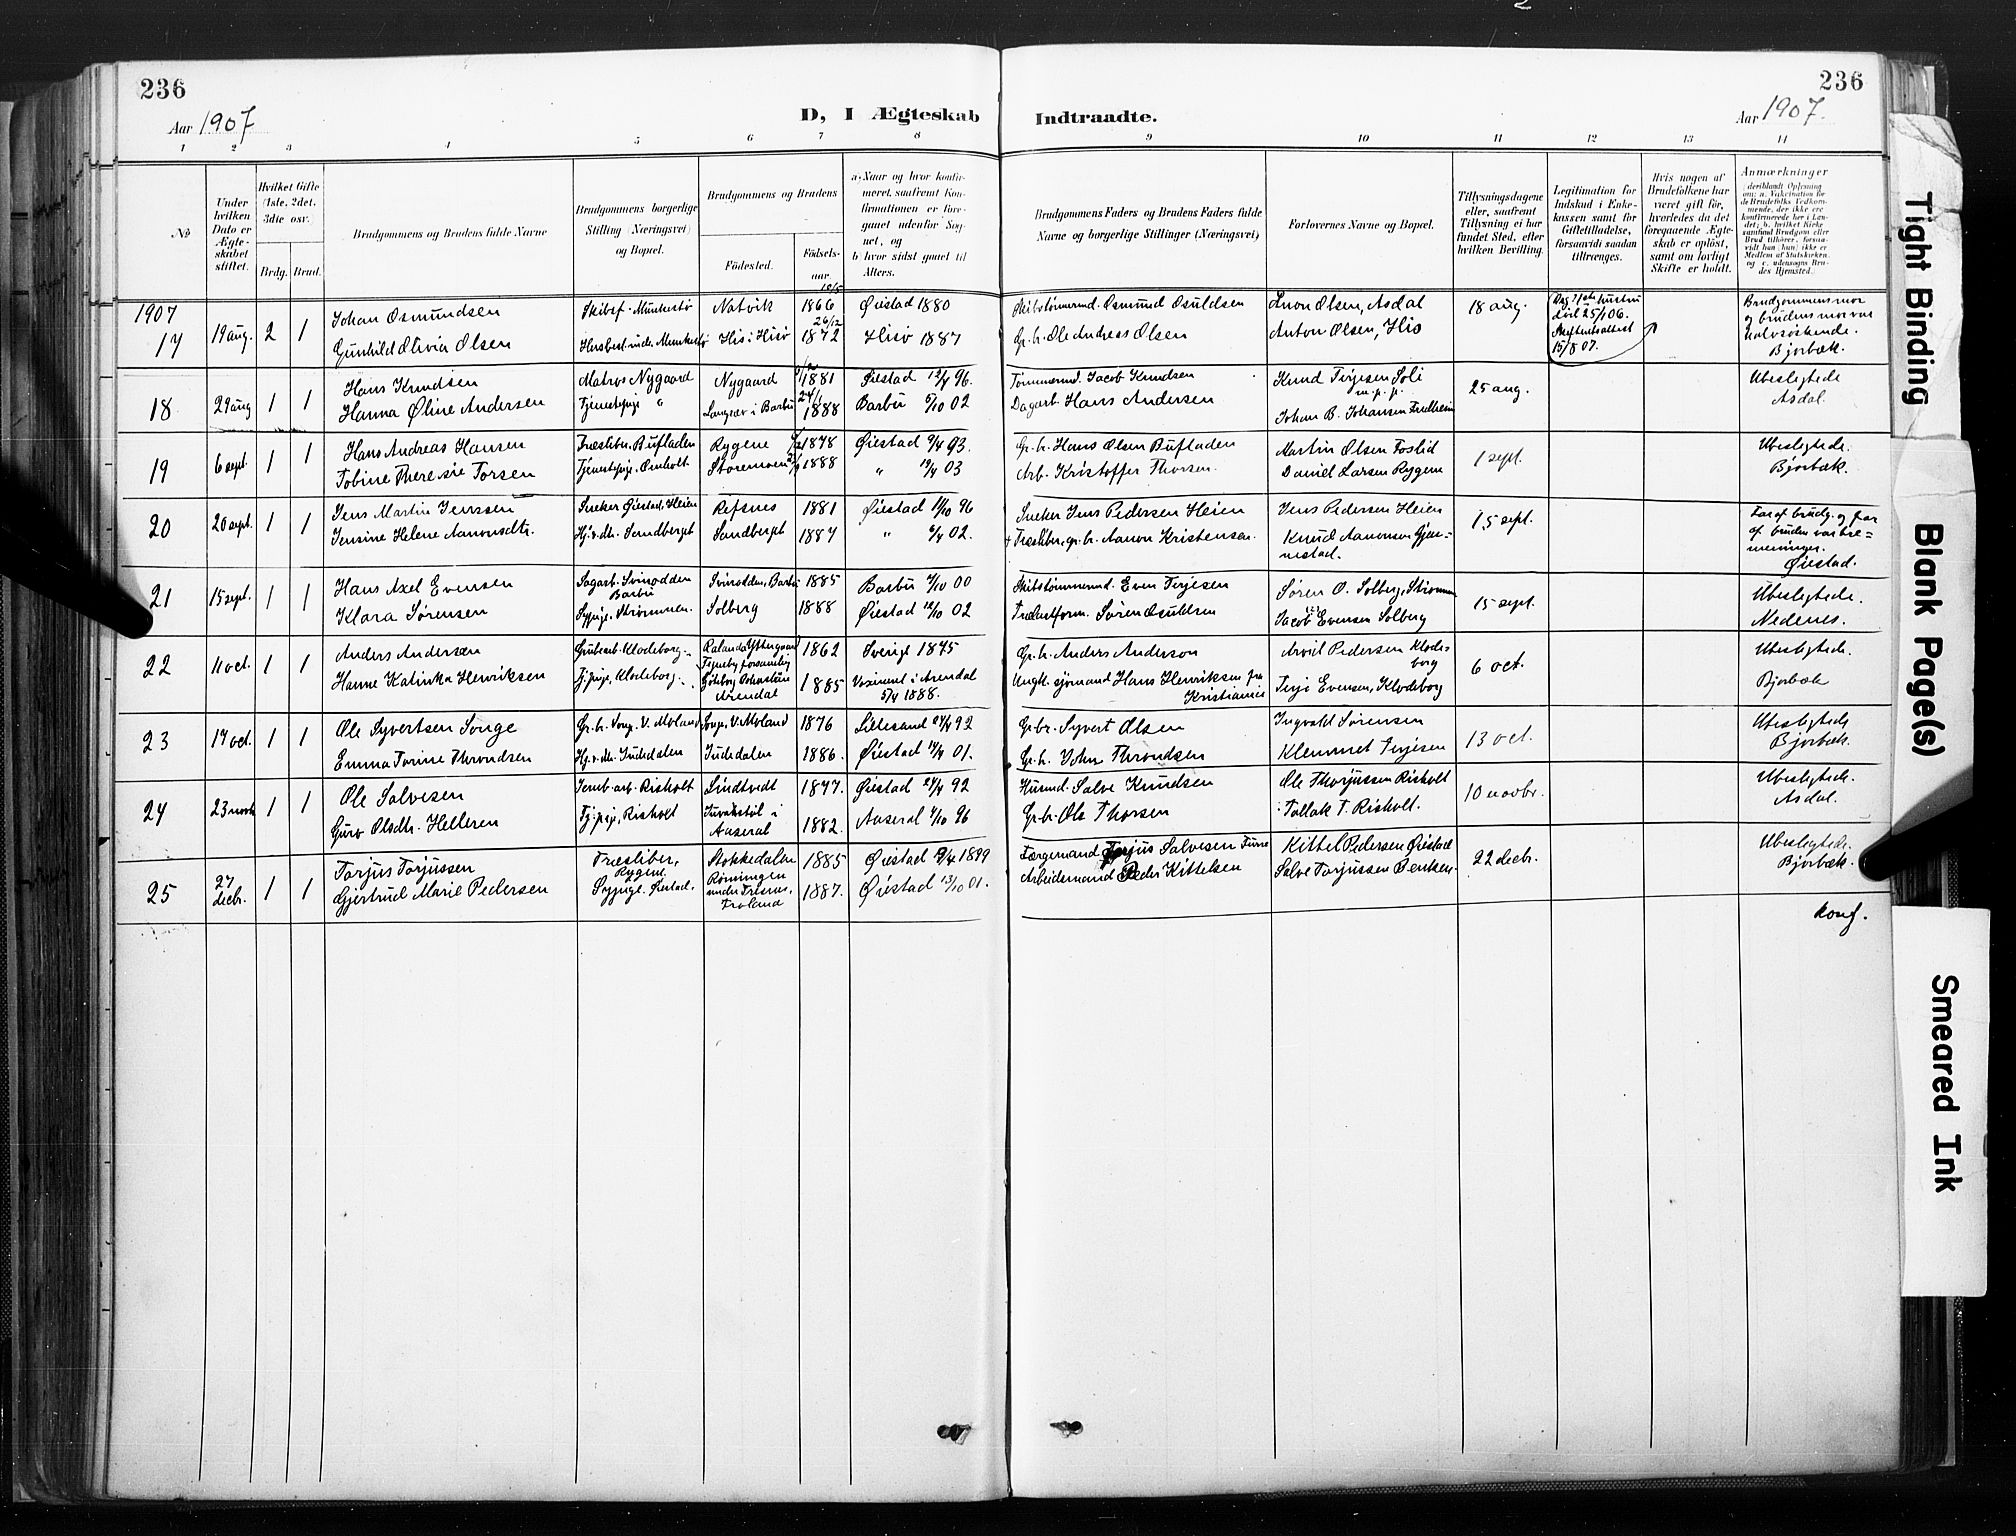 236
236
Aar 1907
D, I Ægteskab Indtraadte.
Aar 1907.
1 2 3 4 5 6 7 8 9 10 11 12 13 14
No
Under hvilken Dato er Ægteskabet stiftet.
Hvilket Gifte (1ste, 2det, 3die osv.)
Brdg. Brud.
Brudgommens og Brudens fulde Navne
Brudgommens borgerlige Stilling (Næringsvei) og Bopæl.
Brudgommens og Brudens
Fødested.
Fødselsaar
a. Naar og hvor konfirmeret, saafremt Konfirmationen er foregaaet udenfor Sognet, og
b. hvor sidst gaaet til Alters.
Brudgommens Faders og Brudens Faders fulde Navne og borgerlige Stillinger (Næringsvei)
Forlovernes Navne og Bopæl.
Tillysningsdagene eller, saafremt Tillysning ei har fundet Sted, efter hvilken Bevilling.
Legitimation for Indskud i Enkekassen samt for Giftetilladelse, forsaavidt saadan tiltrænges.
Hvis nogen af Brudefolkene har været gift før, hvorledes da det foregaaende Ægteskab er opløst, samt om lovligt Skifte er holdt.
Anmærkninger
1907
17 19 aug. 2 1
Johan Osmundsen
Gunhild Olivia Olsen
Skibsf. Munkestø
Natvik
His i Hisø
10/5 1866
26/12 1872
Øiestad 1880
Hisø 1887
Skibstømmermd. Osmund Osuldsen
Gr. br. Ole Andreas Olsen
Anon Olsen, Asdal
Anton Olsen, His
18 aug.
død 25/1 06.
Skifteattest
15/8 07.
Brudgommens mor
og brudens mor var
halvsøskende.
Bjorbæk.
18 29 aug 1 1
Hans Knudsen
Hanna Øline Andersen
Matros Nygaard
Tjenestepige "
Nygaard
Langsæv i Barbu
1881
24/1 1888
Øiestad 12/4 96.
Barbu 5/10 02
Tømmermd. Jacob Knudsen
Dagarb. Hans Andersen
Knud Terjesen Soli
m. p. p.
Johan B. Johansen Fredheim
25 aug.
Ubeslegtede
Asdal.
19 6 sept. 1 1
Hans Andreas Hansen
Tobine Theresie Torsen
Træslibr. Bufladen
Tjenestepige. Ørnholt
Rygene
Storemoen
1878
1888
Øiestad 9/4 93.
" 19/4 03
Gr. br. Hans Olsen Bufladen
Arb. Kristoffer Thorsen.
Martin Olsen Foslid
Daniel Larsen Rygene
1 sept.
Ubeslegtede.
Bjorbæk.
20 20 sept. 1 1
Jens Martin Jenssen
Jensine Helene Aanonsdtr.
Sneker Øiestad, Heien
Hj. v. Mr. Sandberget
Refsnes
Sandberget
1881
1887
Øiestad 11/10 96
" 6/4 02.
Sneker Jens Pedersen Heien
+ Træslibr., gr. br. Aanon Kristensen.
Jens Pedersen Heien
Knud Aanonsen Gjennestad.
15 sept.
Far af brudg. og far
af bruden var tremenninger.
Øiestad.
21 15 sept. 1 1
Hans Axel Evensen
Klara Sørensen
Sagarb. Svinodden
Barbu
Sypige. Strømmen.
Svinodden, Barbu
Solberg
1885
1888
Barbu 7/10 00
Øiestad 12/10 02
Skibstømmermd. Even Terjesen
Trælastform. Søren Osuldsen
Søren O. Solberg, Strømmen
Jacob Evensen Solberg
15 sept.
Ubeslegtede.
Nedenes.
22 11 oct. 1 1
Anders Andersen
Hanne Katinka Henriksen
Grubearb. Klodeborg.
Tj. pige, Klodeborg.
Arendal
1862
1885
Sverige 1875
Vaxinert i Arendal
5/4 1888.
Gr. br. Anders Anderson
Ungk. sjømand Hans Henriksen fra
Kristiania
Arvid Pedersen Klodeborg
Terje Evensen, Klodeborg
6 oct.
Ubeslegtede.
Bjorbæk
23 17 oct. 1 1
Ole Syvertsen Songe
Emma Torine Throndsen
Gr. br. Songe. V. Moland
Hj. v. Mr. Indredalen
Songe, V. Moland
Indredalen
1876
1886.
Lillesand 24/4 92
Øiestad 14/4 01.
Gr. br. Syvert Olsen
Gr. br. John Throndsen
Ingvald Sørensen
Klemmet Terjesen
13 oct.
Ubeslegtede
Bjorbæk.
24 23 novbr 1 1
Ole Salvesen
Guro Olsdtr. Helleren
Jernb. arb. Risholt
Tj. pige, Risholt
Lindtvedt
Juvatstøl i
Aaseral
1877.
1882.
Øiestad 24/4 92
Aaseral 4/10 96
Husmd. Salve Knudsen
Gr. br. Ole Thorsen
Ole Thorjussen Risholt
Tallak T. Risholt.
10 novbr.
Ubeslegtede.
Asdal.
25 27 decbr. 1 1
Torjus Torjussen
Gjertrud Marie Pedersen
Træsliber,
Rygene
Sypige. Øiestad.
Stokkedalen
Røiningen
under
Froland
1885
1887.
Øiestad 9/4 1899
Øiestad 13/10 01.
Færgemand Torjus Salvesen Furre
Arbeidsmand Peder Kittelsen
Kittel Pedersen Øiestad
Salve Torjussen Bentsen.
22 decbr.
Ubeslegtede
Bjorbæk.
konf.
Tight Binding
Blank Page(s)
Smeared Ink